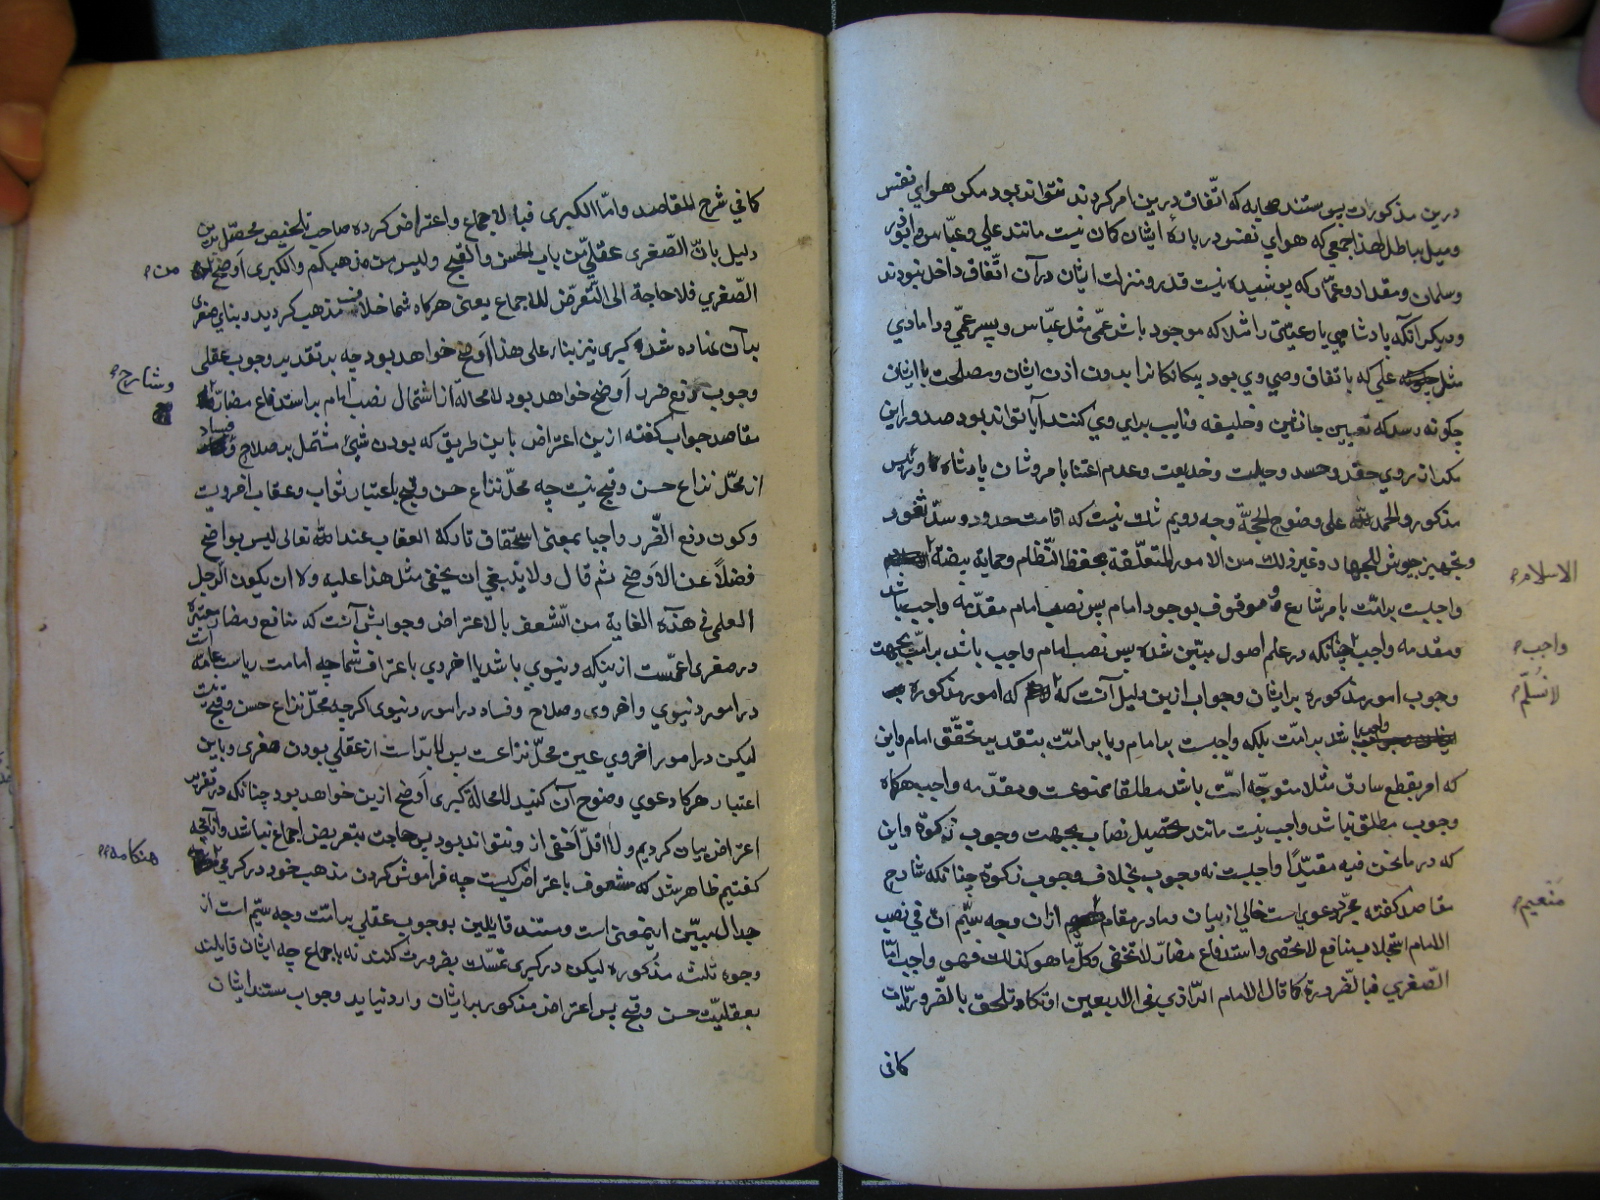 درین مذکورات پس مستند صحابه که اتّفاق درین امر کردند نتواند بود مکر هوای نفس
ومیل بباطل لهذا جمعی که هوای نفس در بارهٔ ایشان کان نیست مانند علی وعبّاس وابوذر
وسلمان ومقداد وعمّار که پوشیده نیست قدر ومنزلت ایشان در آن اتّفاق داخل نبودند
ودیکر آنکه پادشاهی یا رعیتی را مثلا که موجود باشد عمّی مثل عبّاس وپسر عمّی ودامادی
مثل علی که باتفاق وصی وی بود بیکانکانرا بدون اذن ایشان ومصلحت با ایشان
چکونه رسد که تعیین جانشین وخلیفه ونایب برای وی کنند آیا تواند بود صدور این
مکر از روی حقد وحسد وحیلت وخدیعت وعدم اعتنا بامر وشان پادشاه ورئیس
مذکور والحمد لله علی وضوح الحجّة وجه دویم شک نیست که اقامت حدود وسدّ ثغور
وتجهیز جیوش للجهاد وغیر ذلک من الامور المتعلّقة بحفظ النّظام وحمایة بیضة
الاسلام
واجبست بر امّت بامر شارع وموقوف بوجود امام پس نصب امام مقدّمه واجب باشد
ومقدمه واجب چنانکه در علم اصول مبیّن شده پس نصب امام واجب باشد بر امّت بجهت
واجب
وجوب امور مذکوره بر ایشان وجواب ازین دلیل آنست که که امور مذکوره
لا نُسلّم
واجب باشد بر امّت بلکه واجبست بر امام ویا بر امّت بتقدیر تحقّق امام واین
که امر بقطع سارق مثلا متوجّه امّت باشد مطلقا ممنوعست ومقدّمه واجب هرکاه
وجوب مطلق نباشد واجب نیست مانند تحصیل نصاب بجهت وجوب زکوة واین
که در ما نحن فیه مقیّدًا واجبست نه وجوب بخلاف وجوب زکوة چنانکه شارح
مقاصد کفته مجرّد دعوی است خالی از بیان وما در مقام ازان وجه سیّم انّ فی نصب
منعیم
الامام استجلاب منافع لا تحصی واستدفاع مضارّ لا تخفی وکلّ ما هو کذلک فهو واجب امّا
الصّغری فبالضّرورة کما قال الامام الرّازی فی الاربعین او تکاد تلحق بالضّروریّات
کمافی
کمافی شرح المقاصد وامّا الکبری فبالاجماع واعتراض کرده صاحب تلخیص محصّل برین
دلیل بانّ الصّغری عقلیّ من باب الحسن والقبح ولیس من مذهبکم والکبری اوضح
من
الصّغری فلا حاجة الی التّعرّض للاجماع یعنی هرکاه شما خلاف مذهب کردید وبنای صغری
بر آن نهاده شد کبری نیز بناء علی هذا اوضح خواهد بود چه بر تقدیر وجوب عقلی
وجوب دفع ضرر اوضح خواهد بود لا محالة از اشتمال نصب امام بر استدفاع مضارّ
وشارح
مقاصد جواب کفته ازین اعتراض باین طریق که بودن شیئ مشتمل بر صلاح وفساد
از محلّ نزاع حسن وقبح نیست چه محلّ نزاع حسن وقبح باعتبار ثواب وعقاب اخرویست
وکون دفع الضّرر واجبا بمعنی استحقاق تارکه العقاب عند الله تعالی لیس بواضح
فضلاً عن الاوضح ثم قال ولا ینبغی ان یخفی مثل هذا علیه ولا ان یکون الرّجل
العلمی فی هذه الغایة من الشّعف بالاعتراض وجوابش آنست که منافع ومضار معتبره
در صغری اعمّست ازینکه دنیوی باشد یا اخروی باعتراف شما چه امامت ریاست عامّه است
در امور دنیوی واخروی وصلاح وفساد در امور دنیوی اکرچه محلّ نزاع حسن وقبح نیست
لیکن در امور اخروی عین محلّ نزاعست پس لابدّ است از عقلی بودن صغری وباین
اعتبار هرکاه دعوی وضوح آن کنید لا محاله کبری اوضح ازین خواهد بود چنانکه در تقریر
اعتراض بیان کردیم ولا اقلّ اخفی از و نتواند بود پس حاجت بتعریض اجماع نباشد وازآنچه
کفتیم ظاهر شد که مشعوف باعتراض کیست چه فراموش کردن مذهب خود در کرمی
هنکامه
جدال مبیّن این معنی است ومستند قایلین بوجوب عقلی بر امّت وجه سیّم است از
وجوه ثلثه مذکوره لیکن در کبری تمسّک بضرورت کنند نه باجماع چه ایشان قایلند
بعقلیّت حسن وقبح پس اعتراض مذکور بر ایشان وارد نیاید وجواب مستند ایشان